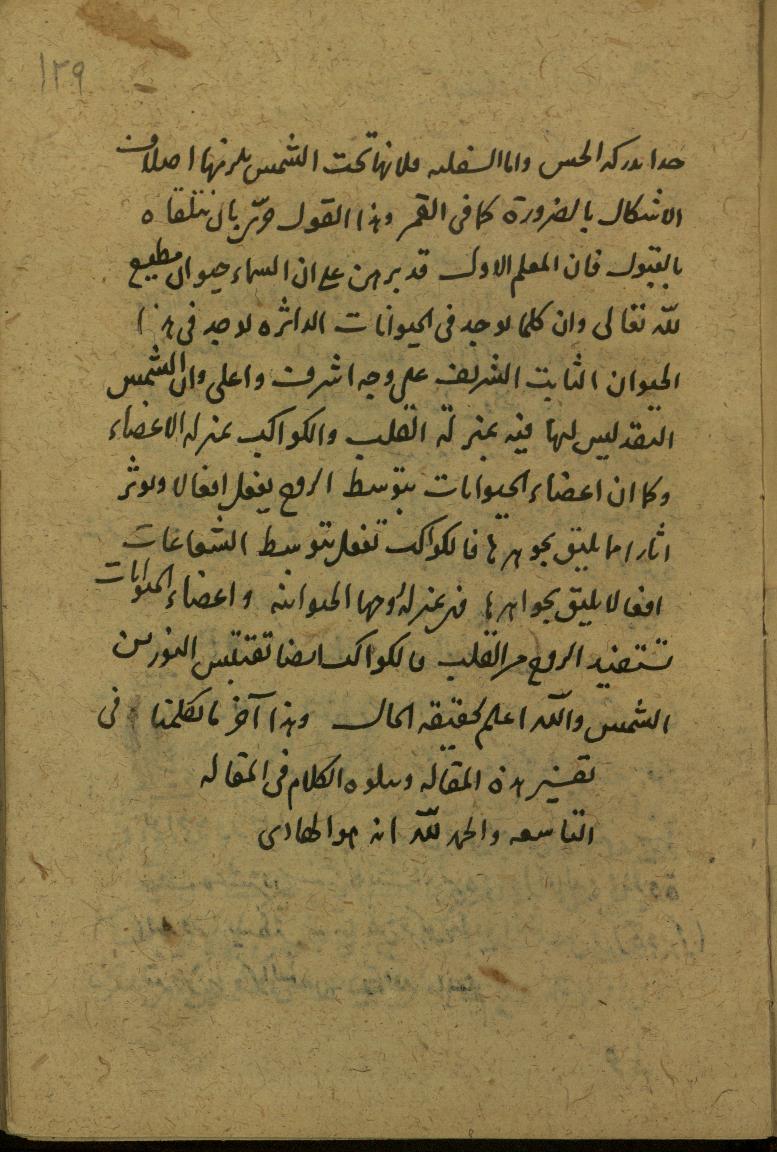 ١٢٩
حدا يدركه الحس واما السفليه فلانها تحت الشمس يلزمها اختلاف
الاشكال بالضرورة كما فى القمر وهذا القول حرىّ بان نتلقاه
بالقبول فان المعلم الاول قد برهن على ان السماء حيوان مطيع
للّه تعالى وان كلما يوجد فى الحيوانات الداثره يوجد فى هذا
الحيوان الثابت الشريف على وجه اشرف واعلى وان الشمس
النقديس لها فيه بمنزلة القلب والكواكب بمنزله الاعضاء
وكما ان اعضاء الحيوانات بتوسط الروح يفعل افعالا ويوثر
اثارا ما يليق بجوهرها فالكواكب تفعل بتوسط الشعاعات
افعالا يليق بجواهرها فهى بمنزله روحها الحيوانيه واعضاء الحيوانات
تستفيد الروح من القلب فالكواكب ايضا تقتبس النور من
الشمس واللّه اعلم بحقيقه الحال وهذا آخر ما تكلمنا فى
تفسير هذه المقاله ويتلوه الكلام فى المقاله
التاسعه والحمد للّه انه هو الهادى